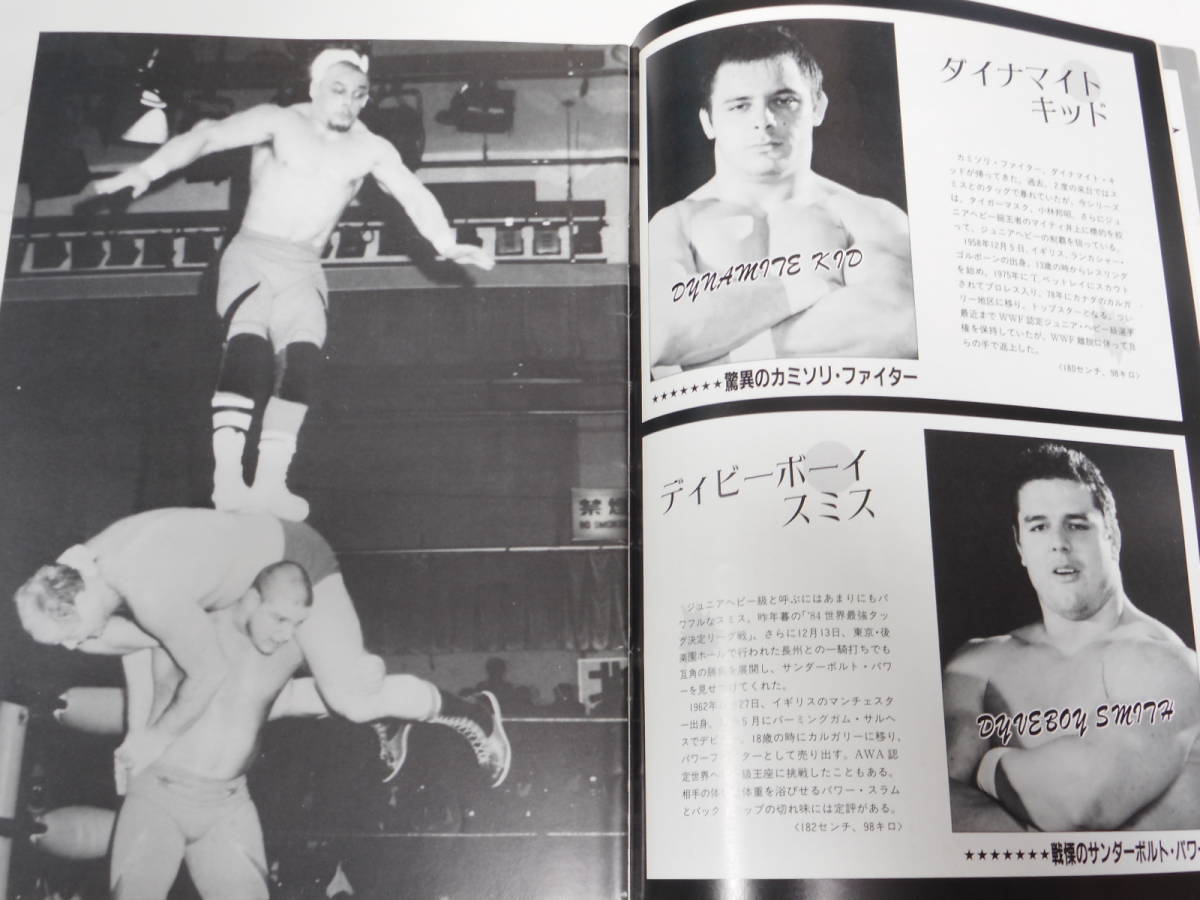 禁煙
NO SMOKING
ダイナマイト
キッド
カミソリ・ファイター、ダイナマイト・キ
ッドが帰ってきた。過去、2度の来日ではス
ミスとのタッグで暴れていたが、今シリーズ
は、タイガーマスク、小林邦昭、さらにジュ
ニアヘビー級王者のマイティ井上に標的を絞
って、ジュニアヘビーの制覇を狙っている。
1958年12月5日、イギリス、ランカシャー・
ゴルボーンの出身。13歳の時からレスリング
を始め、1975年にT.ベットレイにスカウト
されてプロレス入り。'78年にカナダのカルガ
リー地区に移り、トップスターとなる。つい
最近までWWF認定ジュニア・ヘビー級選手
権を保持していたが、WWF離脱に伴って自
らの手で返上した。
〈180センチ、98キロ〉
DYNAMITE KID
★★★★★★★驚異のカミソリ・ファイター
デイビーボーイ
スミス
ジュニアヘビー級と呼ぶにはあまりにもパ
ワフルなスミス。昨年暮の「'84世界最強タッ
グ決定リーグ戦」、さらに12月13日、東京・後
楽園ホールで行われた長州との一騎打ちでも
互角の勝負を展開し、サンダーボルト・パワ
ーを見せつけてくれた。
1962年 月27日、イギリスのマンチェスタ
ー出身。 5月にバーミンガム・サルヘ
スでデビ 、18歳の時にカルガリーに移り、
パワーファイターとして売り出す。AWA認
定世界ヘ 級王座に挑戦したこともある。
相手の体 体重を浴びせるパワー・スラム
とバック ップの切れ味には定評がある。
〈182センチ、98キロ〉
DYVEBOY SMITH
★★★★★★★戦慄のサンダーボルト・パワー